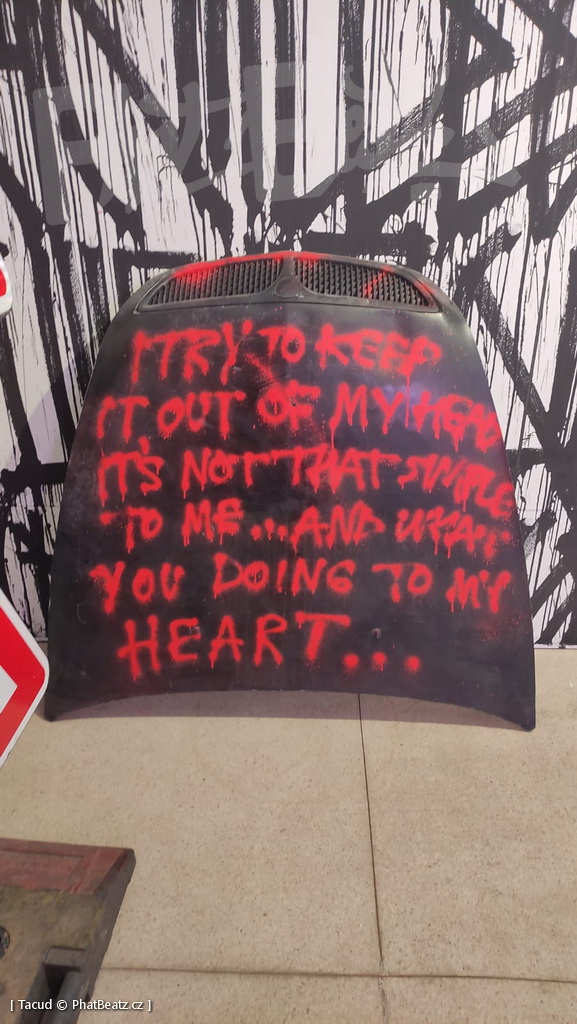 I TRY TO KEEP
IT OUT OF MY HEAD
IT'S NOT THAT SIMPLE
TO ME...AND WHAT
YOU DOING TO MY
HEART...
[ Tacud © PhatBeatz.cz ]